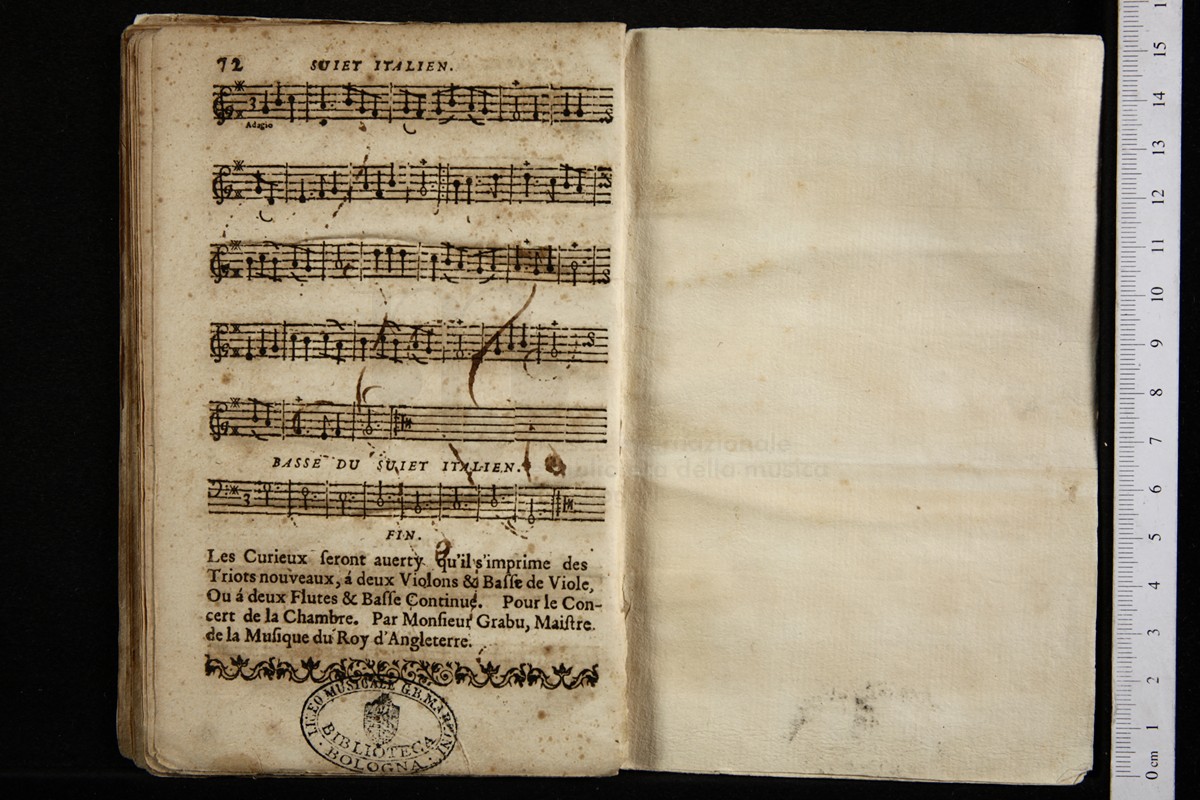 72 SUIET ITALIEN.
Adagio
BASSE DU SUIET ITALIEN.
FIN.
Les Curieux ſeront auerty qu'il s'imprime des
Triots nouveaux, á deux Violons & Baſſe de Viole,
Ou á deux Flutes & Baſſe Continue. Pour le Con-
cert de la Chambre. Par Monſieur Grabu, Maiſtre
de la Muſique du Roy d'Angleterre.
LICEO MUSICALE G.B. MARTINI
BIBLIOTECA
BOLOGNA
della musica
0 cm 1 2 3 4 5 6 7 8 9 10 11 12 13 14 15